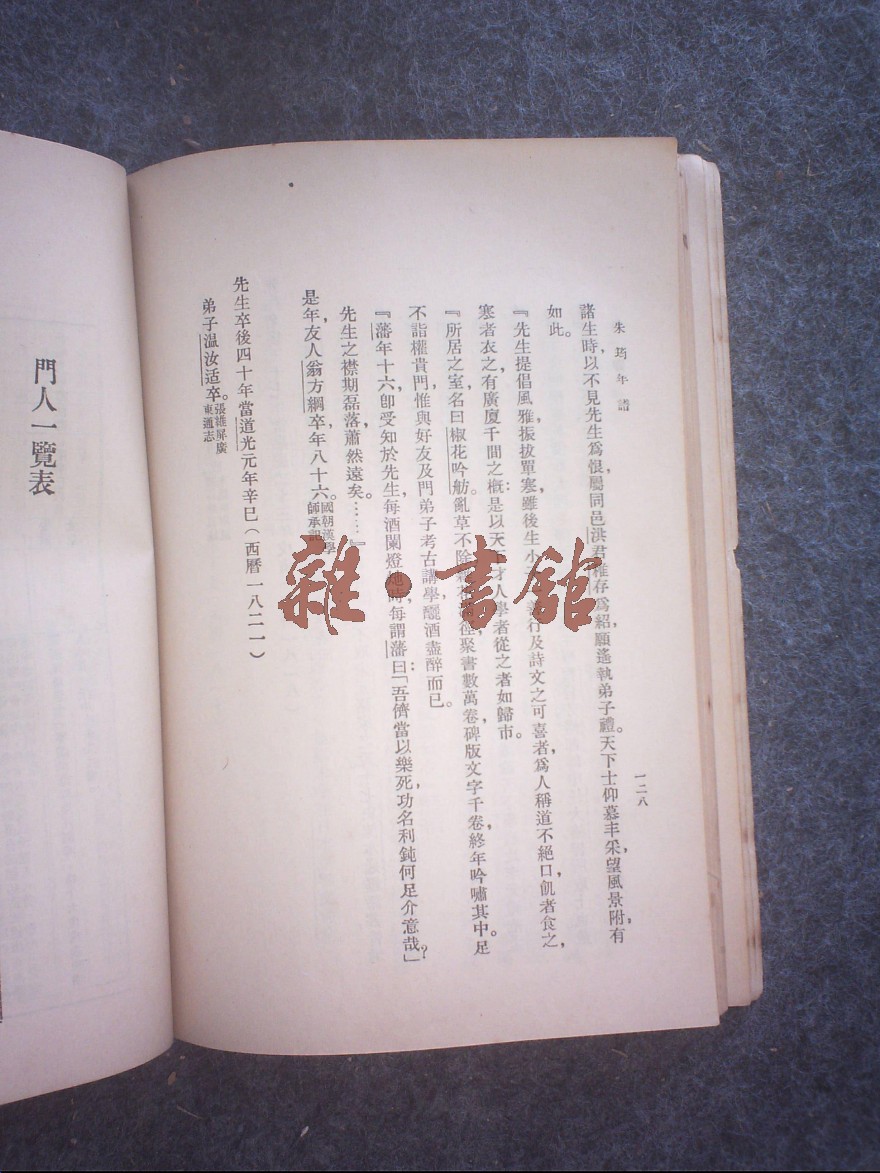 朱筠年譜
一二八
諸生時，以不見先生爲恨，屬同邑洪君稚存爲紹，願遙執弟子禮。天下士仰慕丰采，望風景附有
如此。
『先生提倡風雅，振拔單寒，雖後生小善行及詩文之可喜者，爲人稱道不絕口，飢者食之，
寒者衣之，有廣廈千間之概：是以天下才人學者從之者如歸市。
『所居之室，名曰椒花吟舫。亂草不除，雜徑，聚書數萬卷，碑版文字千卷，終年吟嘯其中。足
不詣權貴門，惟與好友及門弟子考古講學，釃酒盡醉而已。
『藩年十六，卽受知於先生，每酒闌燈灺時，每謂藩曰：「吾儕當以樂死，功名利鈍何足介意哉？」
先生之襟期磊落，蕭然遠矣。……』
國朝漢學
師承記
是年，友人翁方綱卒，年八十六。
先生卒後四十年當道光元年辛巳（西曆一八二一）
弟子温汝适卒。張維屏廣
東通志
門人一覽表
雜·書館